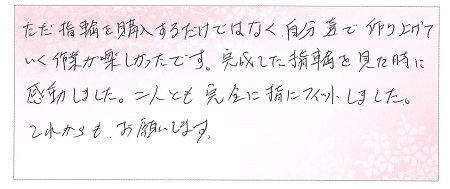 ただ指輪を購入するだけではなく自分達で作り上げて
いく作業が楽しかったです。完成した指輪を見た時に
感動しました。二人とも完全に指にフィットしました。
これからも、お願いします。